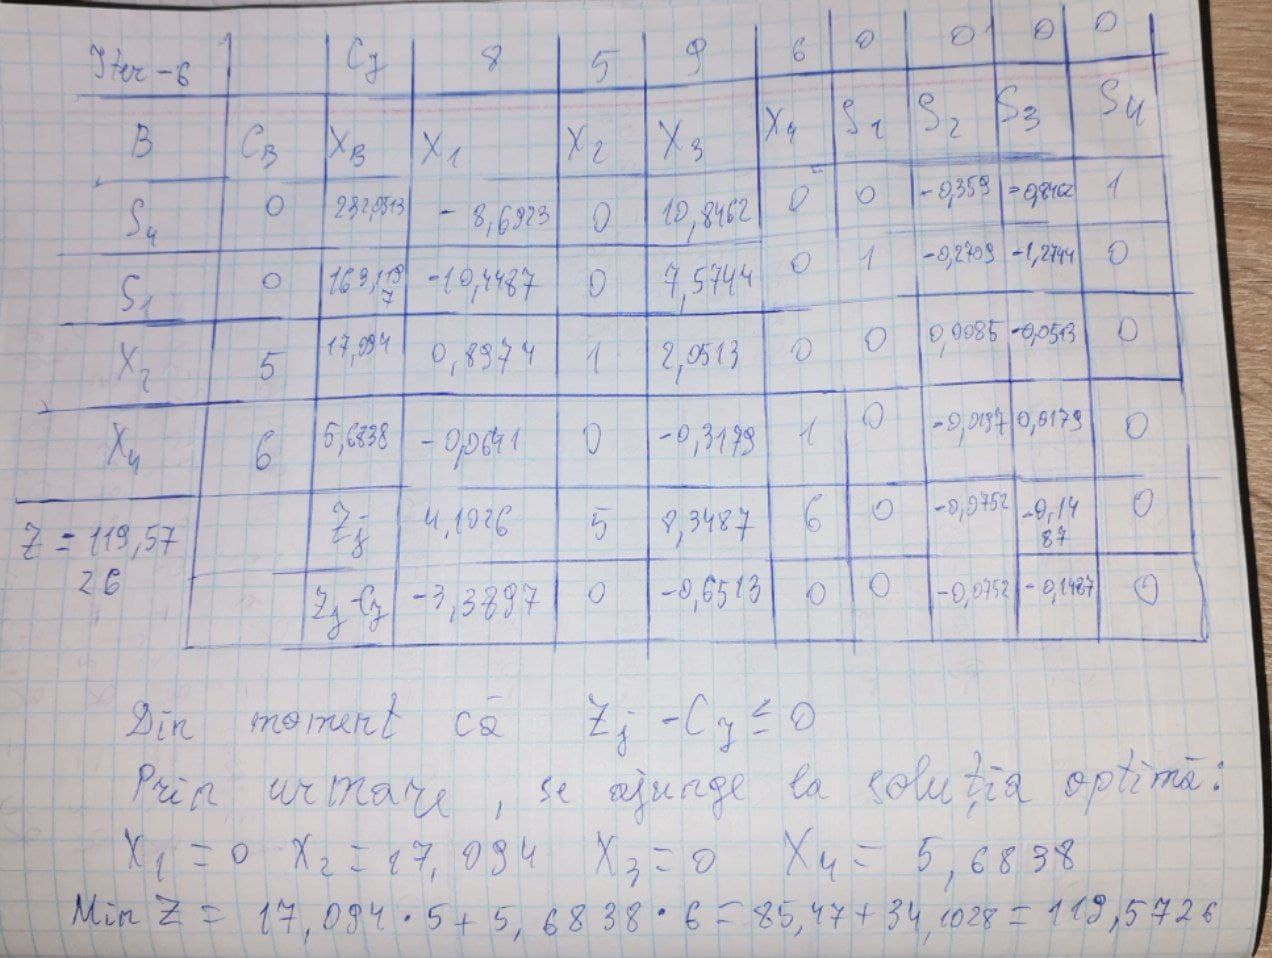 Iter-6 Cj 8 5 9 6 0 0 0 0
B CB XB X1 X2 X3 X4 S1 S2 S3 S4
S4 0 232,0513 -8,6923 0 10,8462 0 0 -0,359 -0,8462 1
S1 0 169,1197 -10,4487 0 7,5744 0 1 -0,2709 -1,2744 0
X2 5 17,094 0,8974 1 2,0513 0 0 0,0085 -0,0513 0
X4 6 5,6838 -0,0641 0 -0,3179 1 0 -0,0197 0,0179 0
Z = 119,5726 Zj 4,1026 5 8,3487 6 0 -0,0752 -0,1487 0
Zj-Cj -3,8974 0 -0,6513 0 0 -0,0752 -0,1487 0
Din moment că Zj - Cj ≤ 0
Prin urmare, se ajunge la soluția optimă:
X1 = 0 X2 = 17,094 X3 = 0 X4 = 5,6838
Min Z = 17,094 · 5 + 5,6838 · 6 = 85,47 + 34,1028 = 119,5726